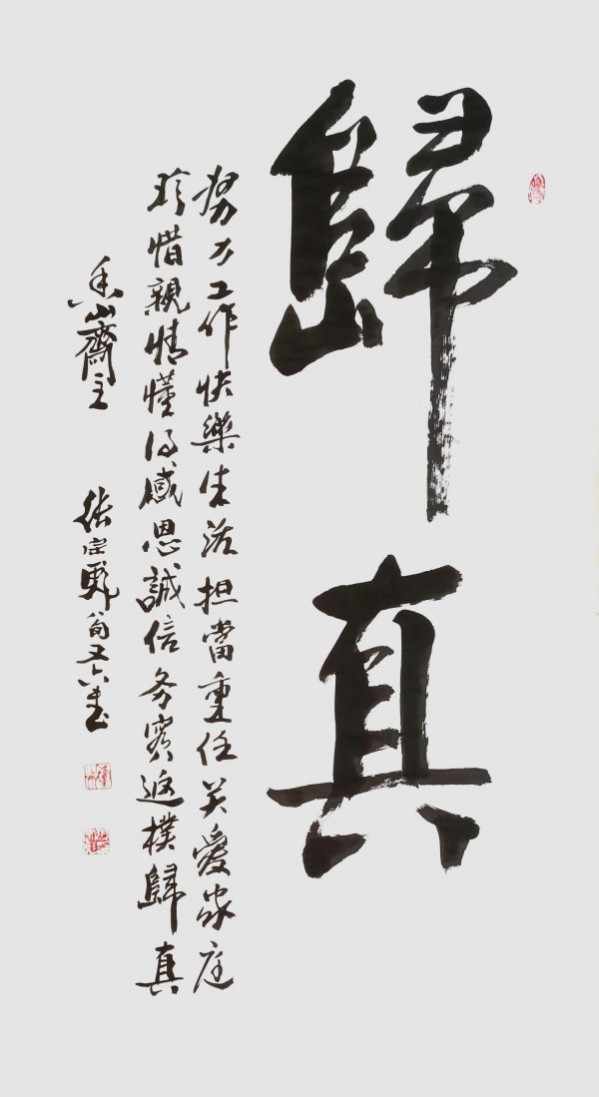 歸真
努力工作快樂生活担當重任关愛家庭
珍惜親情懂得感恩誠信务實返樸歸真
香山齋主 張宗彪八旬又六書